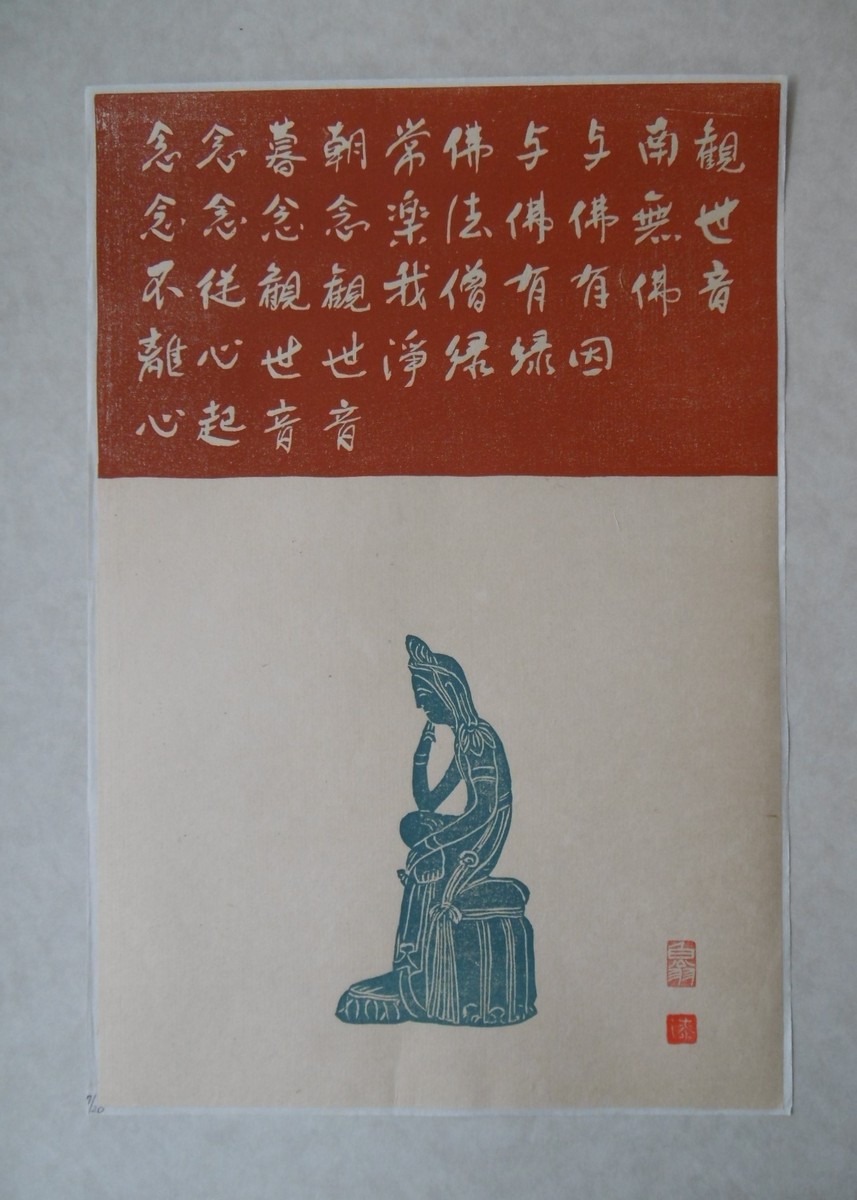 觀世音
南無佛
与佛有因
与佛有縁
佛法僧縁
常楽我淨
朝念觀世音
暮念觀世音
念念従心起
念念不離心
7/20